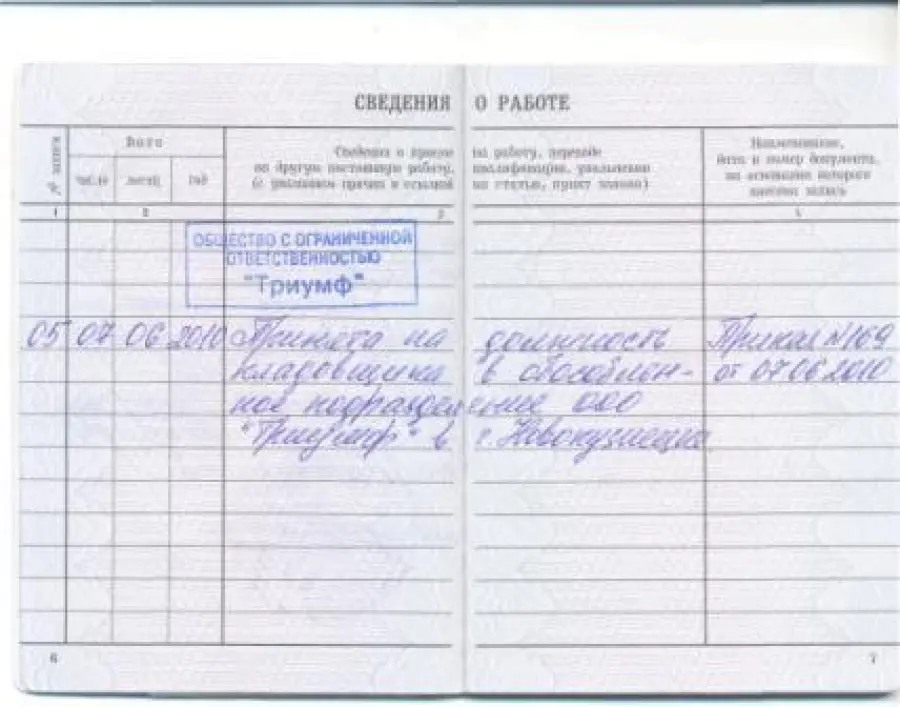 СВЕДЕНИЯ О РАБОТЕ
№ записи
Дата
число
месяц
год
Сведения о приеме на работу, переводе
на другую постоянную работу, квалификации, увольнении
(с указанием причин и ссылкой на статью, пункт закона)
Наименование,
дата и номер документа,
на основании которого
внесена запись
1
2
3
4
ОБЩЕСТВО С ОГРАНИЧЕННОЙ
ОТВЕТСТВЕННОСТЬЮ
"Триумф"
05 07 06 2010 Принята на должность Приказ N 169
кладовщика в обособлен- от 07 06 2010
ное подразделение ООО
"Триумф" в г. Новокузнецке
6
7